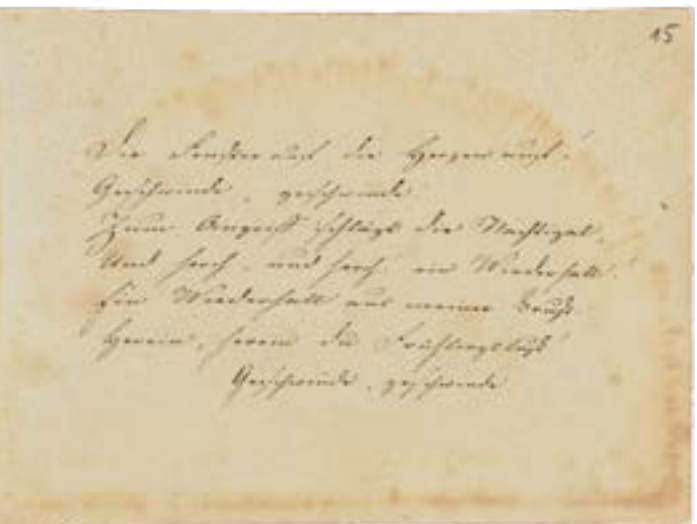 15
Die Fenster auf die Herzen auf!
Geschwinde, geschwinde
Zum Angriff schlägt die Nachtigal,
Und horch, und horch, ein Wiederhall!
Ein Wiederhall aus meiner Brust
Herein, herein du Frühlingslust
Geschwinde, geschwinde